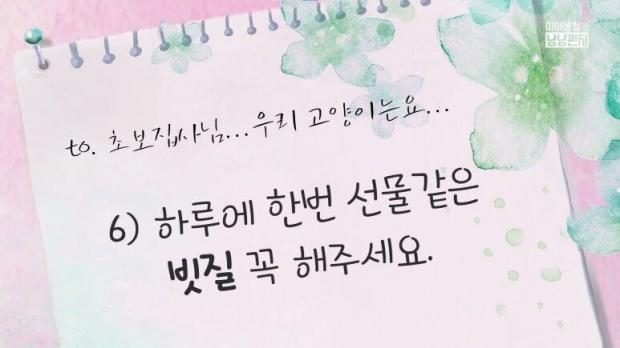 미야옹철의
냥냥펀치
to. 초보집사님... 우리 고양이는요...
6) 하루에 한번 선물같은
빗질 꼭 해주세요.